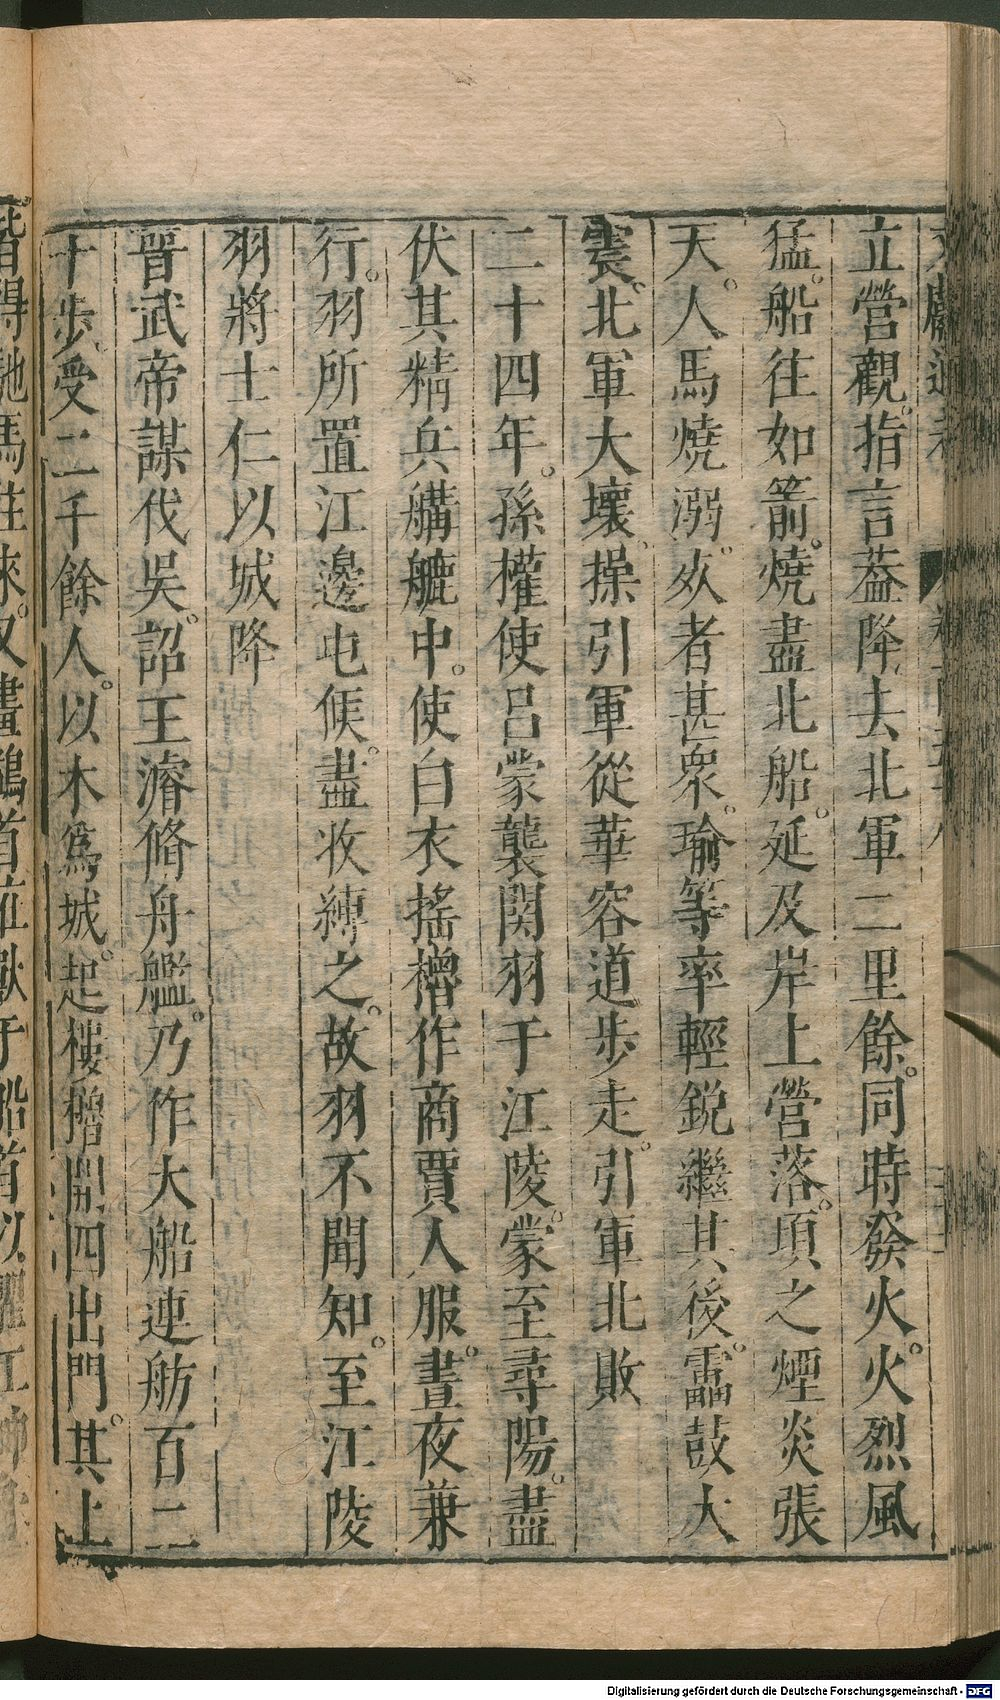 立營觀指言葢降去北軍二里餘同時發火火烈風
猛船往如箭燒盡北船延及岸上營落頃之煙炎張
天人馬燒溺死者甚衆瑜等率輕銳繼其後靁鼓大
震北軍大壞操引軍從華容道步走引軍北敗
二十四年孫權使呂蒙襲関羽于江陵蒙至尋陽盡
伏其精兵䑦䑠中使白衣搖櫓作商賈人服晝夜兼
行羽所置江邊屯候盡收縛之故羽不聞知至江陵
羽將士仁以城降
晉武帝謀伐吳詔王濬脩舟艦乃作大船連舫百二
十步受二千餘人以木爲城起樓櫓開四出門其上
皆得馳馬往來又畫鷁首在獸于船首以懼江神
Digitalisierung gefördert durch die Deutsche Forschungsgemeinschaft - DFG